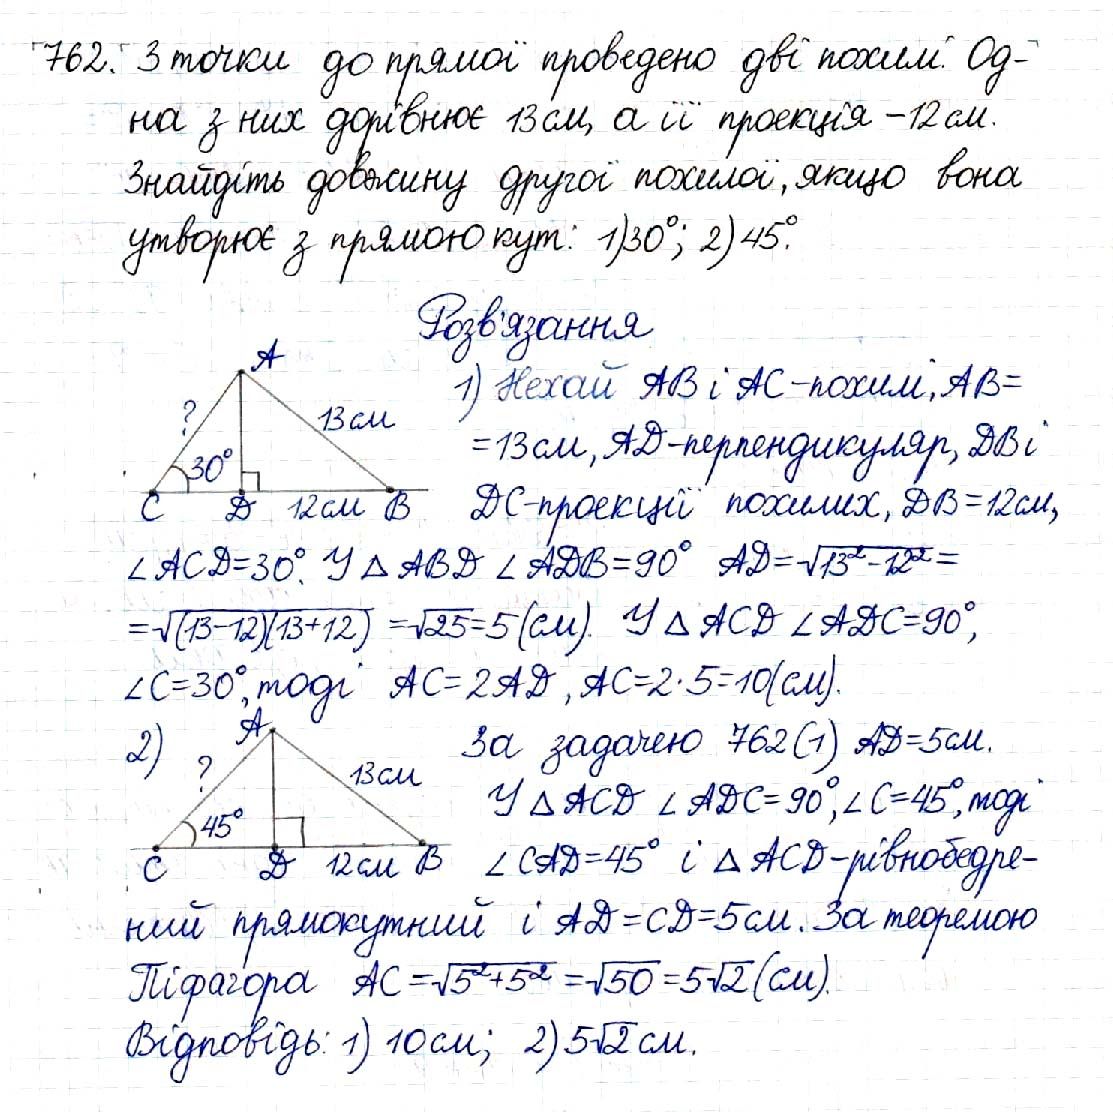 762. З точки до прямої проведено дві похилі. Од-
на з них дорівнює 13 см, а її проекція – 12 см.
Знайдіть довжину другої похилої, якщо вона
утворює з прямою кут: 1) 30°; 2) 45°.
Розв'язання
A
? 13 см
30°
C D 12 см B
1) Нехай AB і AC – похилі, AB=
=13 см, AD – перпендикуляр, DB і
DC – проекції похилих, DB = 12 см,
∠ACD=30°. У △ABD ∠ADB=90° AD=√(13²-12²)=
=√((13-12)(13+12)) =√25=5 (см). У △ACD ∠ADC=90°,
∠C=30°, тоді AC=2AD, AC=2·5=10(см).
2)
A
? 13 см
45°
C D 12 см B
За задачею 762(1) AD=5 см.
У △ACD ∠ADC=90°, ∠C=45°, тоді
∠CAD=45° і △ACD – рівнобедре-
ний прямокутний і AD=CD=5 см. За теоремою
Піфагора AC=√(5²+5²)=√50=5√2 (см).
Відповідь: 1) 10 см; 2) 5√2 см.